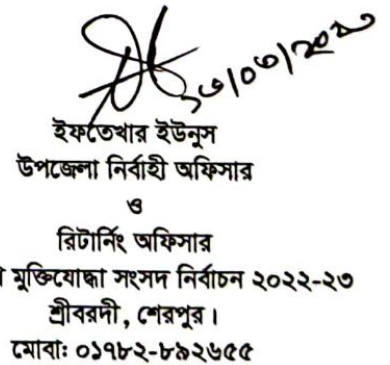 ইফতেখার ইউনুস
উপজেলা নির্বাহী অফিসার
ও
রিটার্নিং অফিসার
মুক্তিযোদ্ধা সংসদ নির্বাচন ২০২২-২৩
শ্রীবরদী, শেরপুর।
মোবাঃ ০১৯৮২-৮৯২৬৫৫